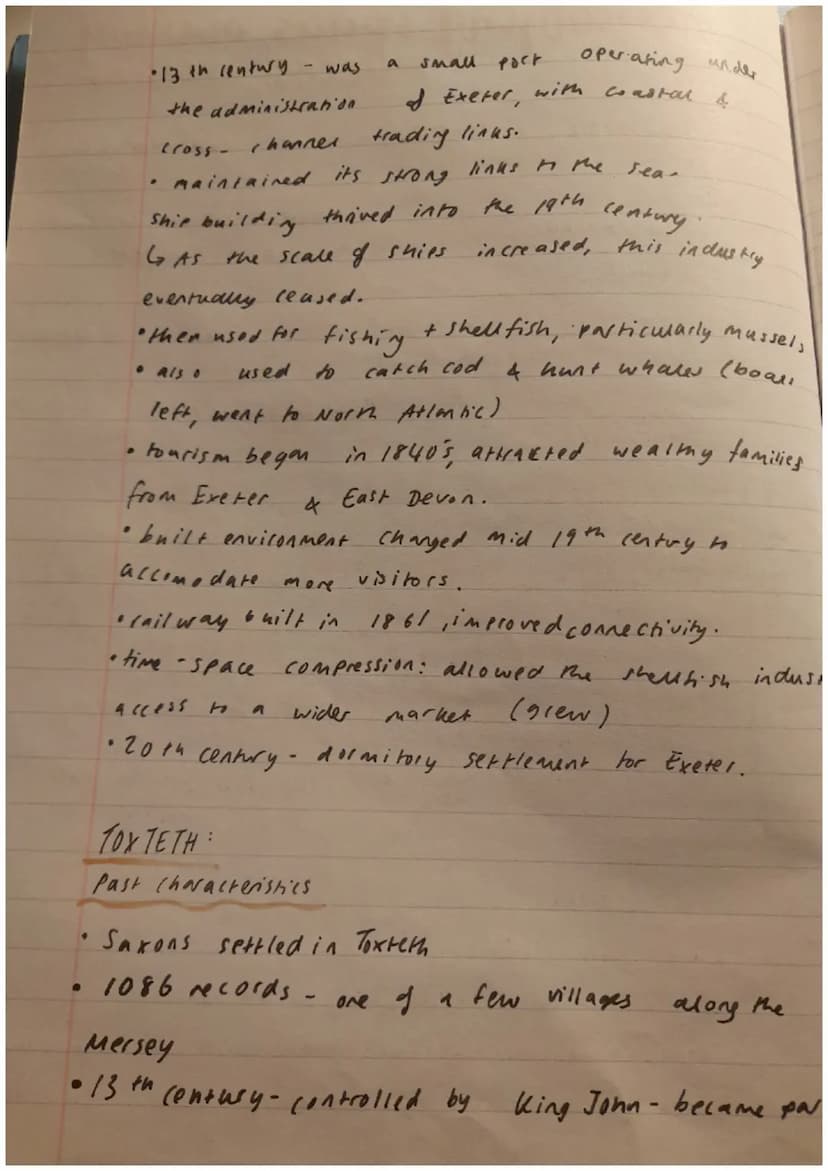 •13th century - was a small port operating under
the administration of Exeter, with coastal &
cross-channel trading links.
• maintained its strong links to the sea-
ship building thrived into the 19th century.
↳ As the scale of ships increased, this industry
eventually ceased.
•then used for fishing + shellfish, particularly mussels
• also used to catch cod & hunt whales (boats
left, went to North Atlantic)
• tourism began in 1840's, attracted wealthy families
from Exeter & East Devon.
• built environment changed mid 19th century to
accomodate more visitors.
•railway built in 1861, improved connectivity.
•time-space compression: allowed the shellfish indus
access to a wider market (grew)
•20th century - dormitory settlement for Exeter.
TOXTETH:
Past Characteristics
• Saxons settled in Toxteth
• 1086 records - one of a few villages along the
Mersey
•13th century - controlled by King John - became